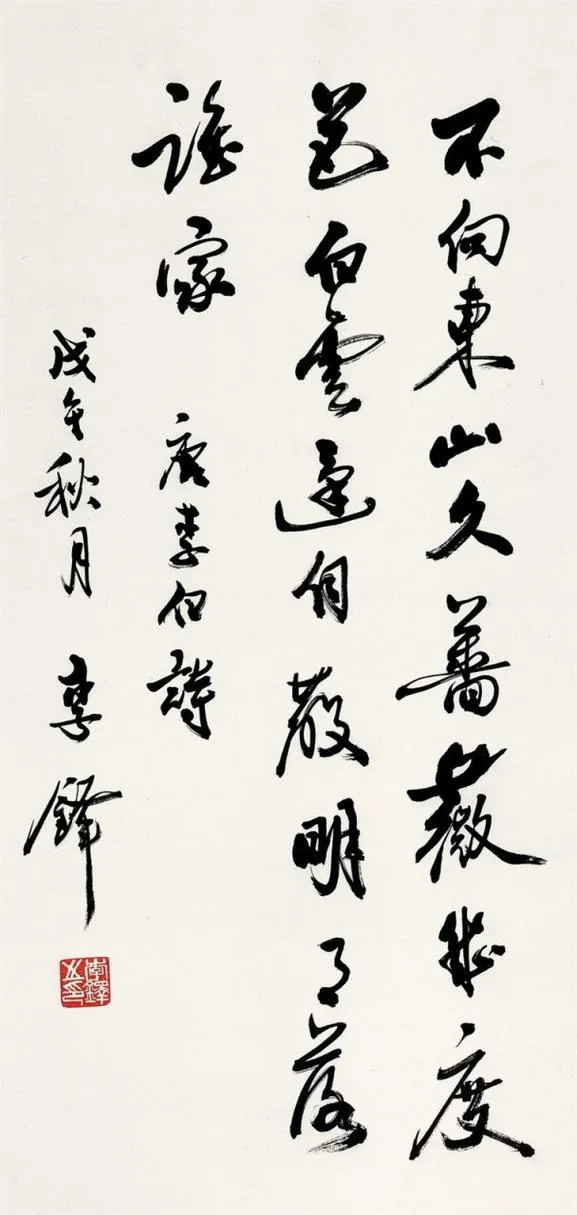 不向東山久薔薇幾度
花白雲還自散明月落
誰家 唐李白詩
戊午秋月 李鐸
李鐸之印